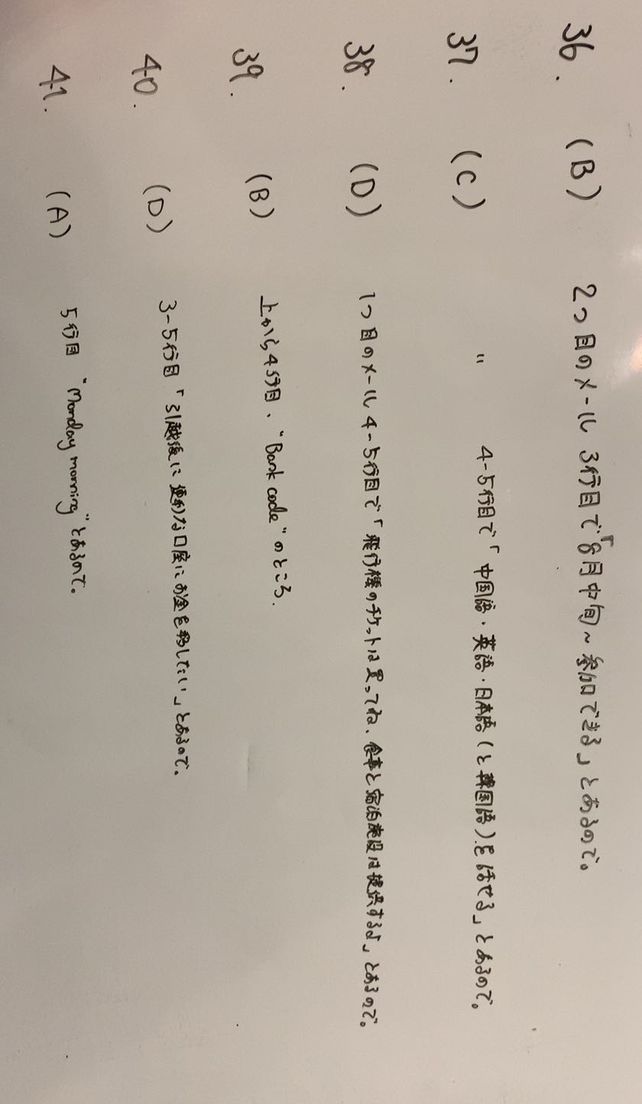 36. (B) 2つ目のメール 3行目で「8月中旬～参加できる」とあるので。
37. (C) 〃 4-5行目で「中国語・英語・日本語(と韓国語)を話せる」とあるので。
38. (D) 1つ目のメール 4-5行目で「飛行機のチケットは買ってね、食事と宿泊施設は提供するよ」とあるので。
39. (B) 上から4行目、"Bank code"のところ.
40. (D) 3-5行目「引越後に便利な口座にお金を移したい」とあるので。
41. (A) 5行目 "Monday morning"とあるので。